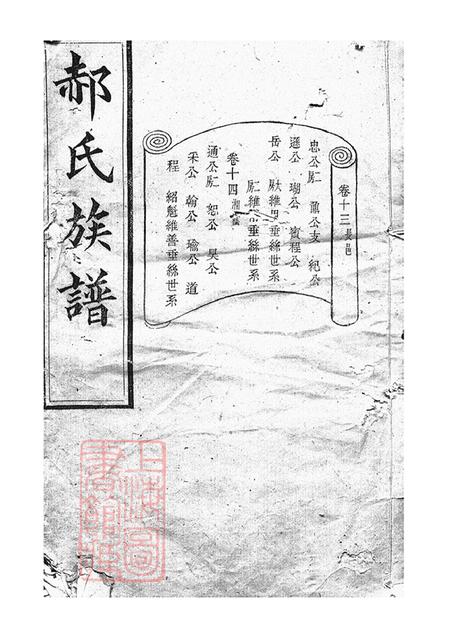 郝氏族譜
卷十三長邑
忠公房 公支 紀公
遜公 瑚公 賓程公
岳公 維 垂絲世系
房維 垂絲世系
卷十四湘
通公房 恕公 昊公
采公 翰公 瑜公 道
程 紹魁維善垂絲世系
上海圖書館